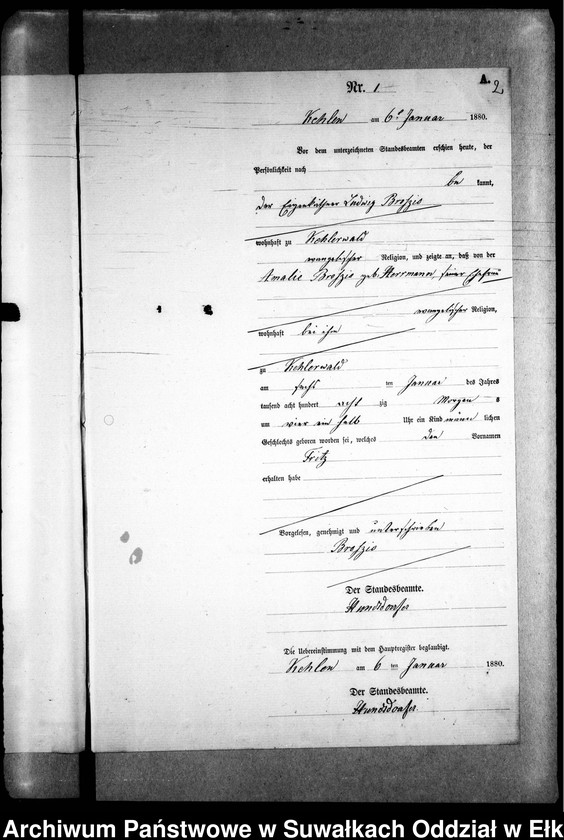 A.
2
Nr. 1
Kehlen am 6t Januar 1880.
Vor dem unterzeichneten Standesbeamten erschien heute, der
Persönlichkeit nach
bekannt,
der Eigenkäthner Ludwig Broszio
wohnhaft zu Kehlerwald
evangelischer Religion, und zeigte an, daß von der
Amalie Broszio geb. Herrmann, seiner Ehefrau
evangelischer Religion,
wohnhaft bei ihm
zu Kehlerwald
am sechs ten Januar des Jahres
tausend acht hundert acht zig Morgens
um vier ein halb Uhr ein Kind männ lichen
Geschlechts geboren worden sei, welches den Vornamen
Fritz
erhalten habe
Vorgelesen, genehmigt und unterschrieben
Broszio
Der Standesbeamte.
Hundsdoerfer
Die Uebereinstimmung mit dem Hauptregister beglaubigt.
Kehlen am 6 ten Januar 1880.
Der Standesbeamte.
Hundsdoerfer
Archiwum Państwowe w Suwałkach Oddział w Ełk